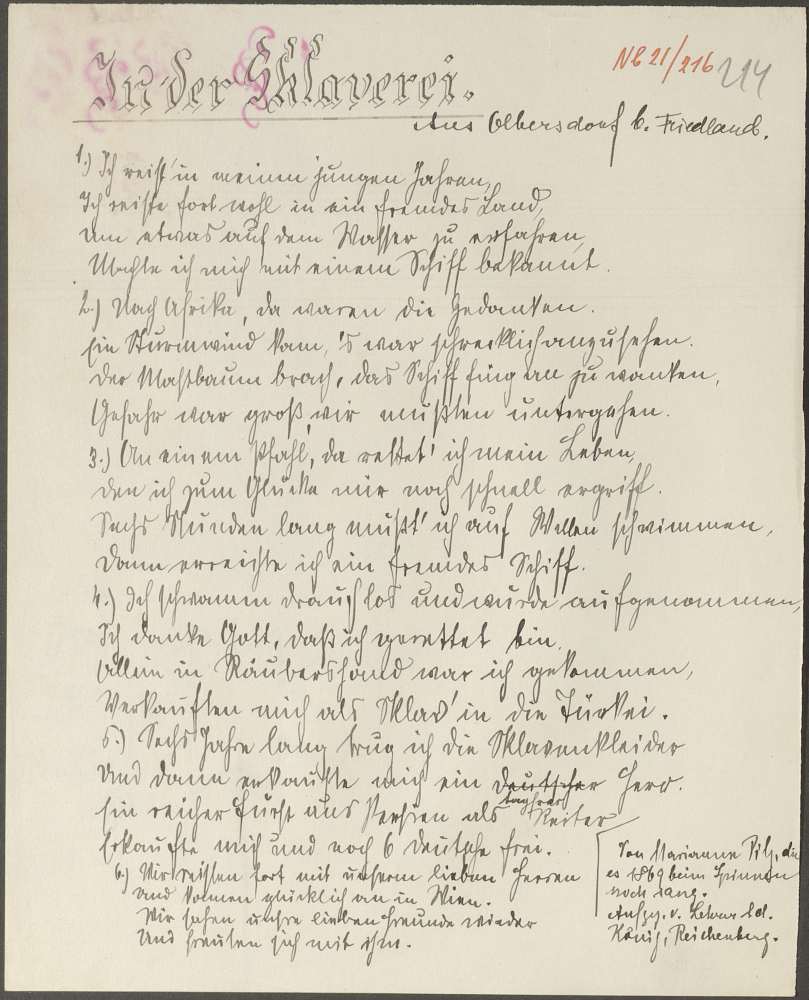 NE 21/216 214
In der Sklaverei.
Aus Olbersdorf b. Friedland.
1.) Ich reist' in meinen jungen Jahren,
Ich reiste fort wohl in ein fremdes Land,
Um etwas auf dem Wasser zu erfahren,
Machte ich mich mit einem Schiff bekannt.
2.) Nach Afrika, da waren die Gedanken.
Ein Sturmwind kam, 's war schrecklich anzusehen.
Der Mastbaum brach, das Schiff fing an zu wanken,
Gefahr war groß, wir mußten untergehen.
3.) An einem Pfahl, da rettet' ich mein Leben,
Den ich zum Glücke mir noch schnell ergriff.
Sechs Stunden lang mußt' ich auf Wellen schwimmen,
Dann erreichte ich ein fremdes Schiff.
4.) Ich schwamm drauf los und wurde aufgenommen,
Ich danke Gott, daß ich gerettet bin.
Allein in Räubershand war ich gekommen,
Verkauften mich als Sklav' in die Türkei.
5.) Sechs Jahre lang trug ich die Sklavenkleider
Und dann erkaufte mich ein deutscher Herr.
Ein reicher Fürst aus Persien als tapfrer Reiter
Erkaufte mich und noch 6 Deutsche frei.
6.) Wir reisten fort mit unserm lieben Herren
Und kamen glücklich an in Wien.
Wir sahen unsre lieben Freunde wieder
Und freuten sich mit ihm.
Von Marianne Pilz, die
es 1869 beim Spinnen
noch sang.
Aufgez. v. Ld.
König, Reichenberg.